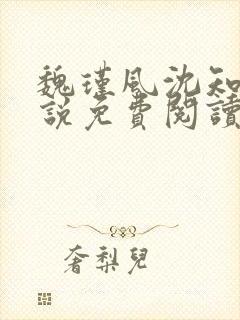 魏瑾風沈知
說免費閱讀
奢梨兒